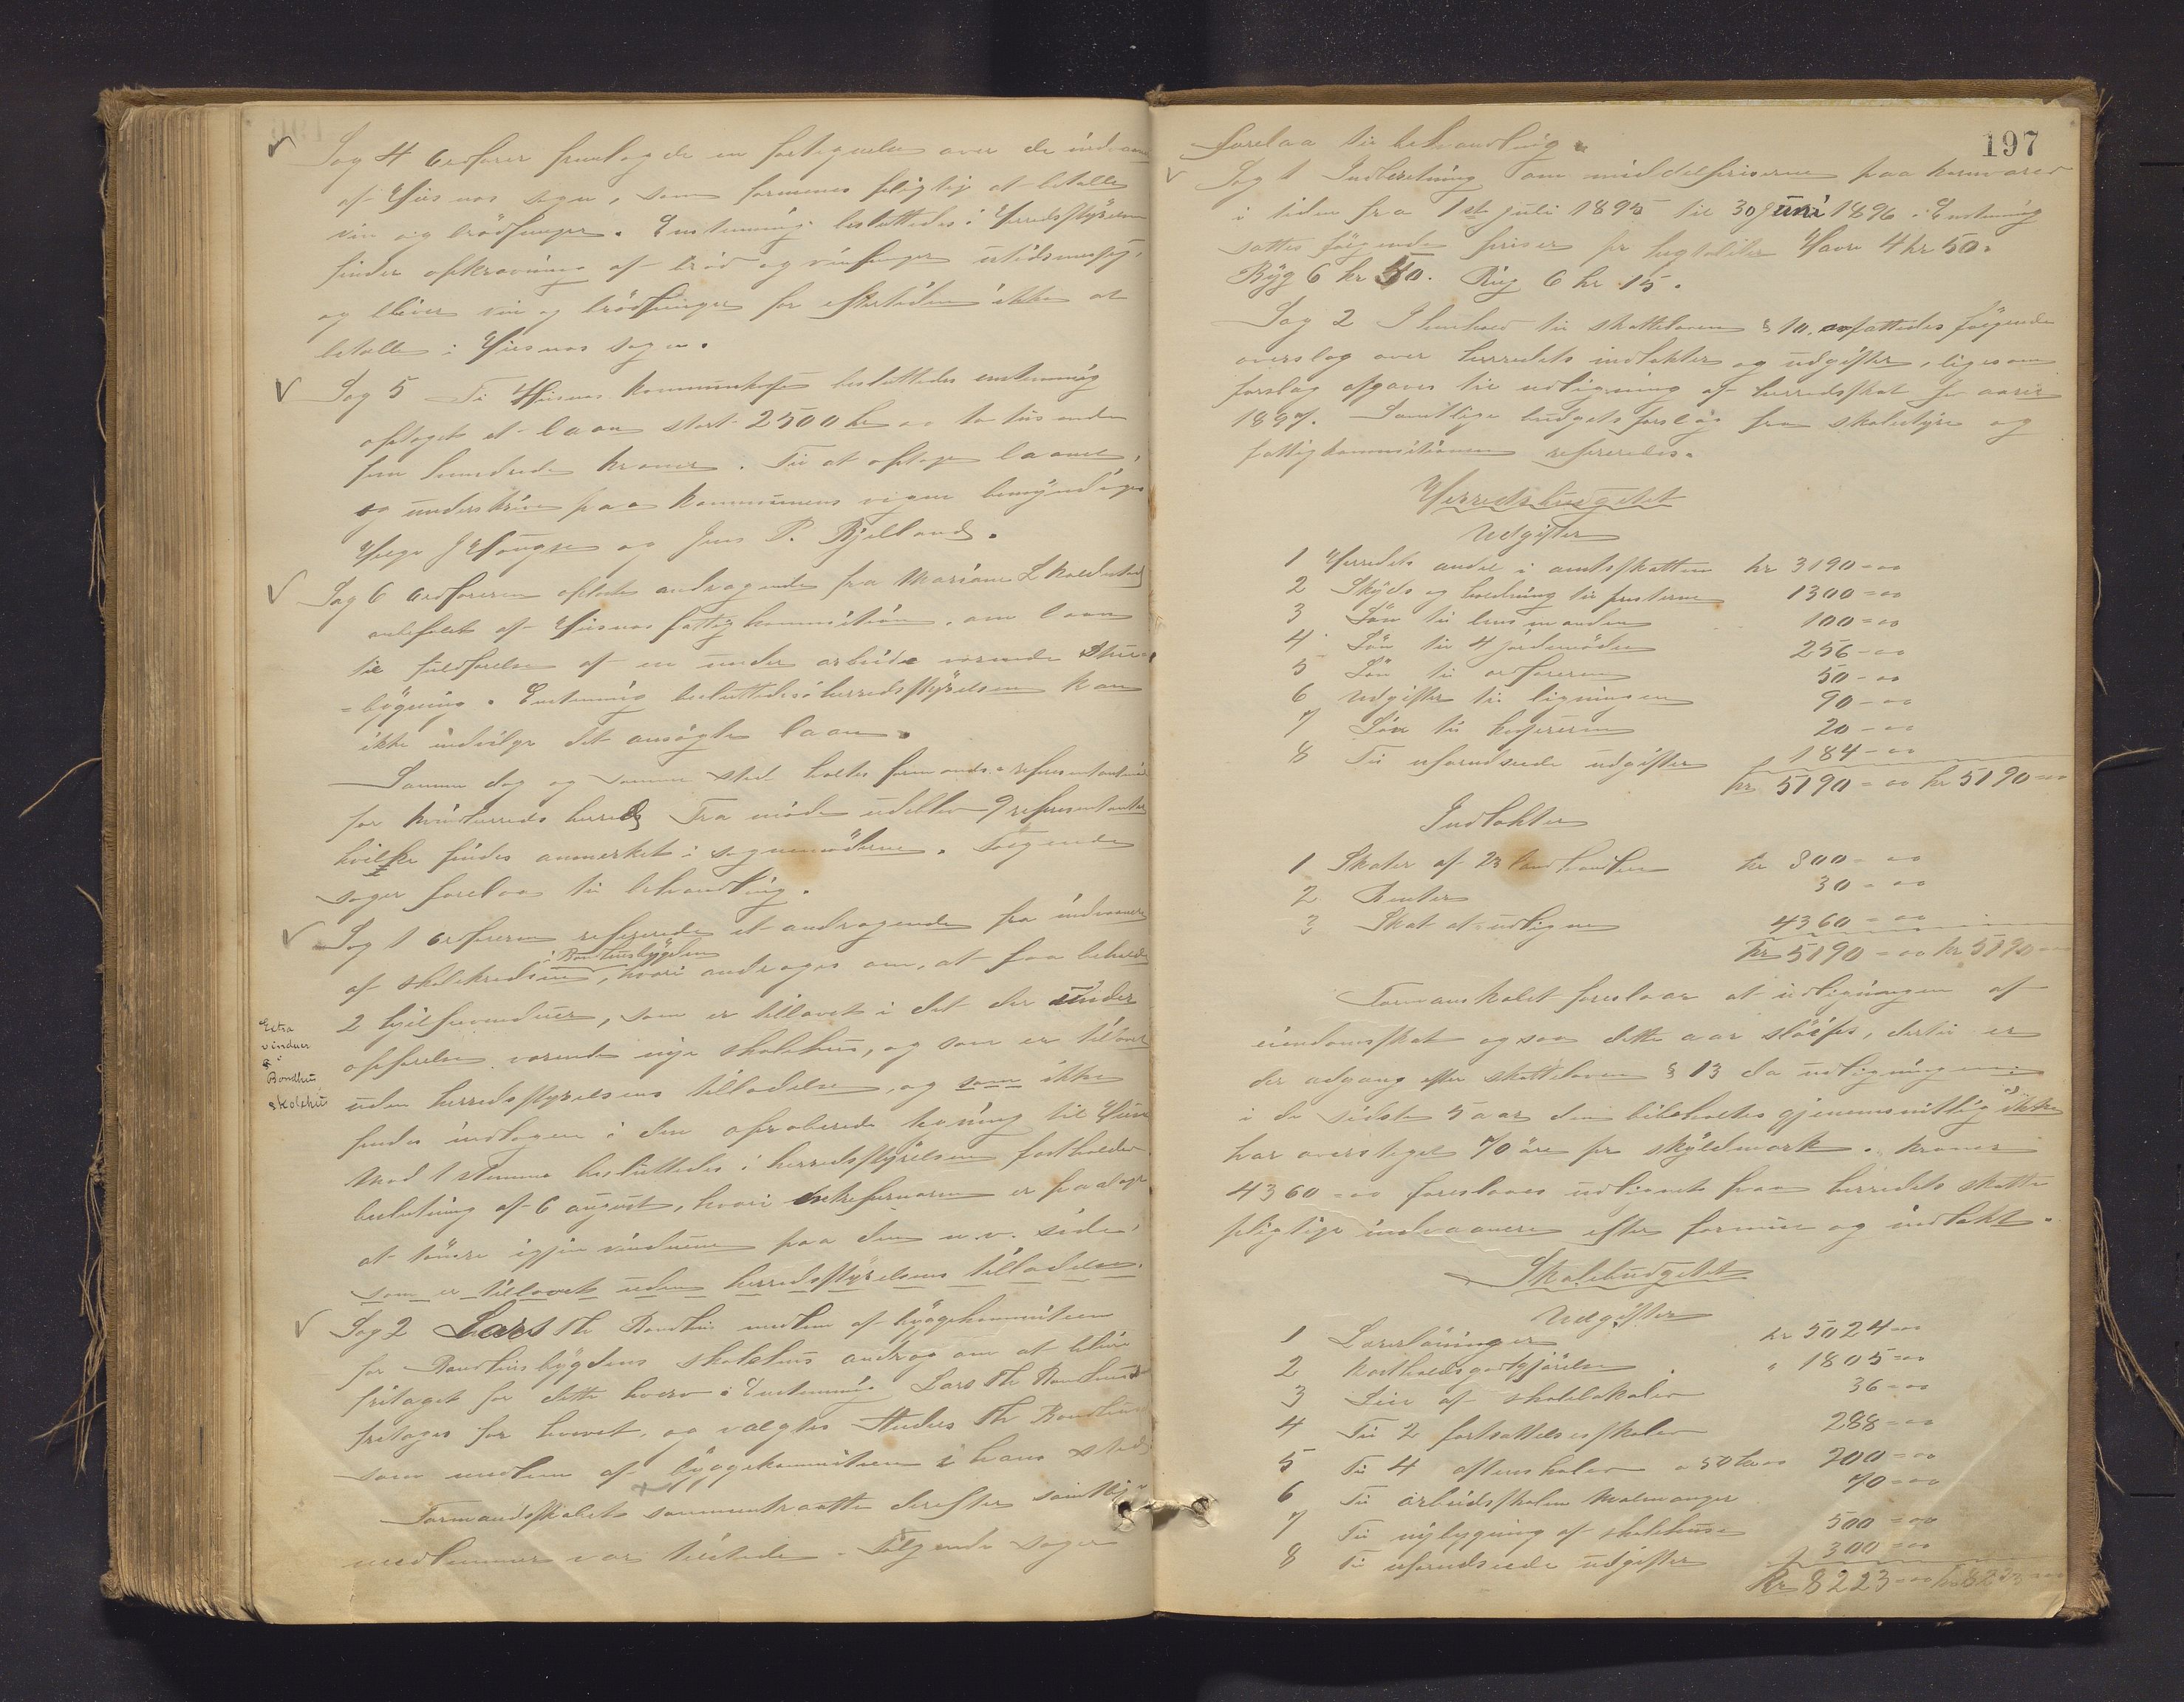 Sag 4 Ordfører fremlagde en fortegnelse over de indvaanere
af Husnes sogn, som formenes pligtig at betalle
vin og brödpenger. Enstemmig besluttedes: Herredsstyrelsen
finder opkrævning af bröd og vinpenger utidsmessig,
og bliver vin og brödpenger for eftertiden ikke at
betalle i Husnes sogn.
Sag 5 Til Husnes kommunekasse besluttedes enstemmig
optaget et laan stort 2500 kr oo to tusende
fem hundrede kroner. Til at optage laanet,
og underskrive paa kommunens vegne bemyndiges
Helge J Haugse og Jens P. Kjelland.
Sag 6 Ordføreren oplæste andragende fra Mariane L
anbefalet af Husnes fattigkommission, om laan
til fuldførelse af en under arbeide værende Stue-
=bygning. Enstemmig besluttedes: herredsstyrelsen kan
ikke indvilge det ansøgte laan.
Samme dag og samme sted holtes formands- representantmöde
for Kvindherreds herred. Fra möde udeblev 9 representanter
hvilke findes anmerket i sognemöderne. Følgende
sager forelaa til behandling.
Sag 1 Ordføreren refererede et andragende fra indvaanere
af skolekredsen i Bondhusbygden, hvori andrages om, at faa beholde
2 vinduer, som er tillavet i det der under
opførelse værende nye skolehus, og som er tillavet
uden herredsstyrelsens tilladelse, og som ikke
findes indtagen i den aproberede tegning til huset
Mod 1 stemme besluttedes: herredsstyrelsen fastholder
beslutning af 6 august, hvori er paalagt
at tömre igjen vinduerne paa den n.v. side,
som er tillavet uden herredsstyrelsens tilladelse.
Extra
vinduer
i
Bondhus
skolehus
Sag 2 Lars Th Bondhus medlem af byggekommiteen
for Bondhusbygdens skolehus androg om at blive
fritaget for dette hverv: Enstemmig Lars Th Bondhus
fritages for hvervet, og valgtes Anders Th Bondhus
som medlem af byggekommiteen i hans sted
Formandsskabet sammentraatte derefter samtlige
medlemmer var tilstede. Følgende sager
197
forelaa til behandling.
Sag 1 Indberetning om middelpriserne paa kornvarer
i tiden fra 1ste juli 1895 til 30 juni 1896. Enstemmig
sattes følgende priser pr hegtoliter Havre 4 kr 50.
Byg 6 kr 50. Rug 6 kr 15.
Sag 2 I henhold til skatteloven § 10. opfattedes følgende
overslag over herredets indtekter og udgifter, ligesom
forslag opgaves til udligning af herredsskat for aaret
1897. Samtlige budgetsforslag fra skolestyre og
fattigkommissionen refereredes.
Herredsbudgetet
Udgifter
1 Herredets andel i amtsskatten kr 3190=oo
2 Skyds og holdning til presterne 1300=oo
3 Løn til lensmanden 100=oo
4 Løn til 4 jordemödre 256-oo
5 Løn til ordføreren 50-oo
6 Udgifter til ligningen 90-oo
7 Løn til kassereren 20-oo
8 Til uforudseede udgifter 184-oo
kr 5190=oo kr 5190=oo
Indtekter
1 Skater af 23 landhandlere kr 800-oo
2 Renter 30-oo
3 Skat at udligne 4360=oo
kr 5190=oo kr 5190=oo
Formanskabet foreslaar at udligningen af
eiendomsskat ogsaa dette aar slöifes, dertil er
der adgang efter skatteloven § 13 da udligningen
i de sidste 5 aar den bibeholtes gjenemsnitlig ikke
har oversteget 70 öre pr skyldmark. Kroner
4360=oo foreslaaes udlignet paa herredets skatte
pligtige indvaanere efter formue og indtekt.
Skolebudgetet
Udgifter
1 Lærerlönninger kr 5024=oo
2 Kostholdsgodtgjörelse " 1805=oo
3 Leie af skolelokaler 36-oo
4 Til 2 fortsættelsesskoler 288=oo
5 Til 4 aftenskoler a 50 kr oo 200=oo
6 Til arbeidsskolen Malmanger 70=oo
7 Til nybygning af skolehuse 500=oo
8 Til uforudseede udgifter 300=oo
Kr 8223=oo kr 8223=oo